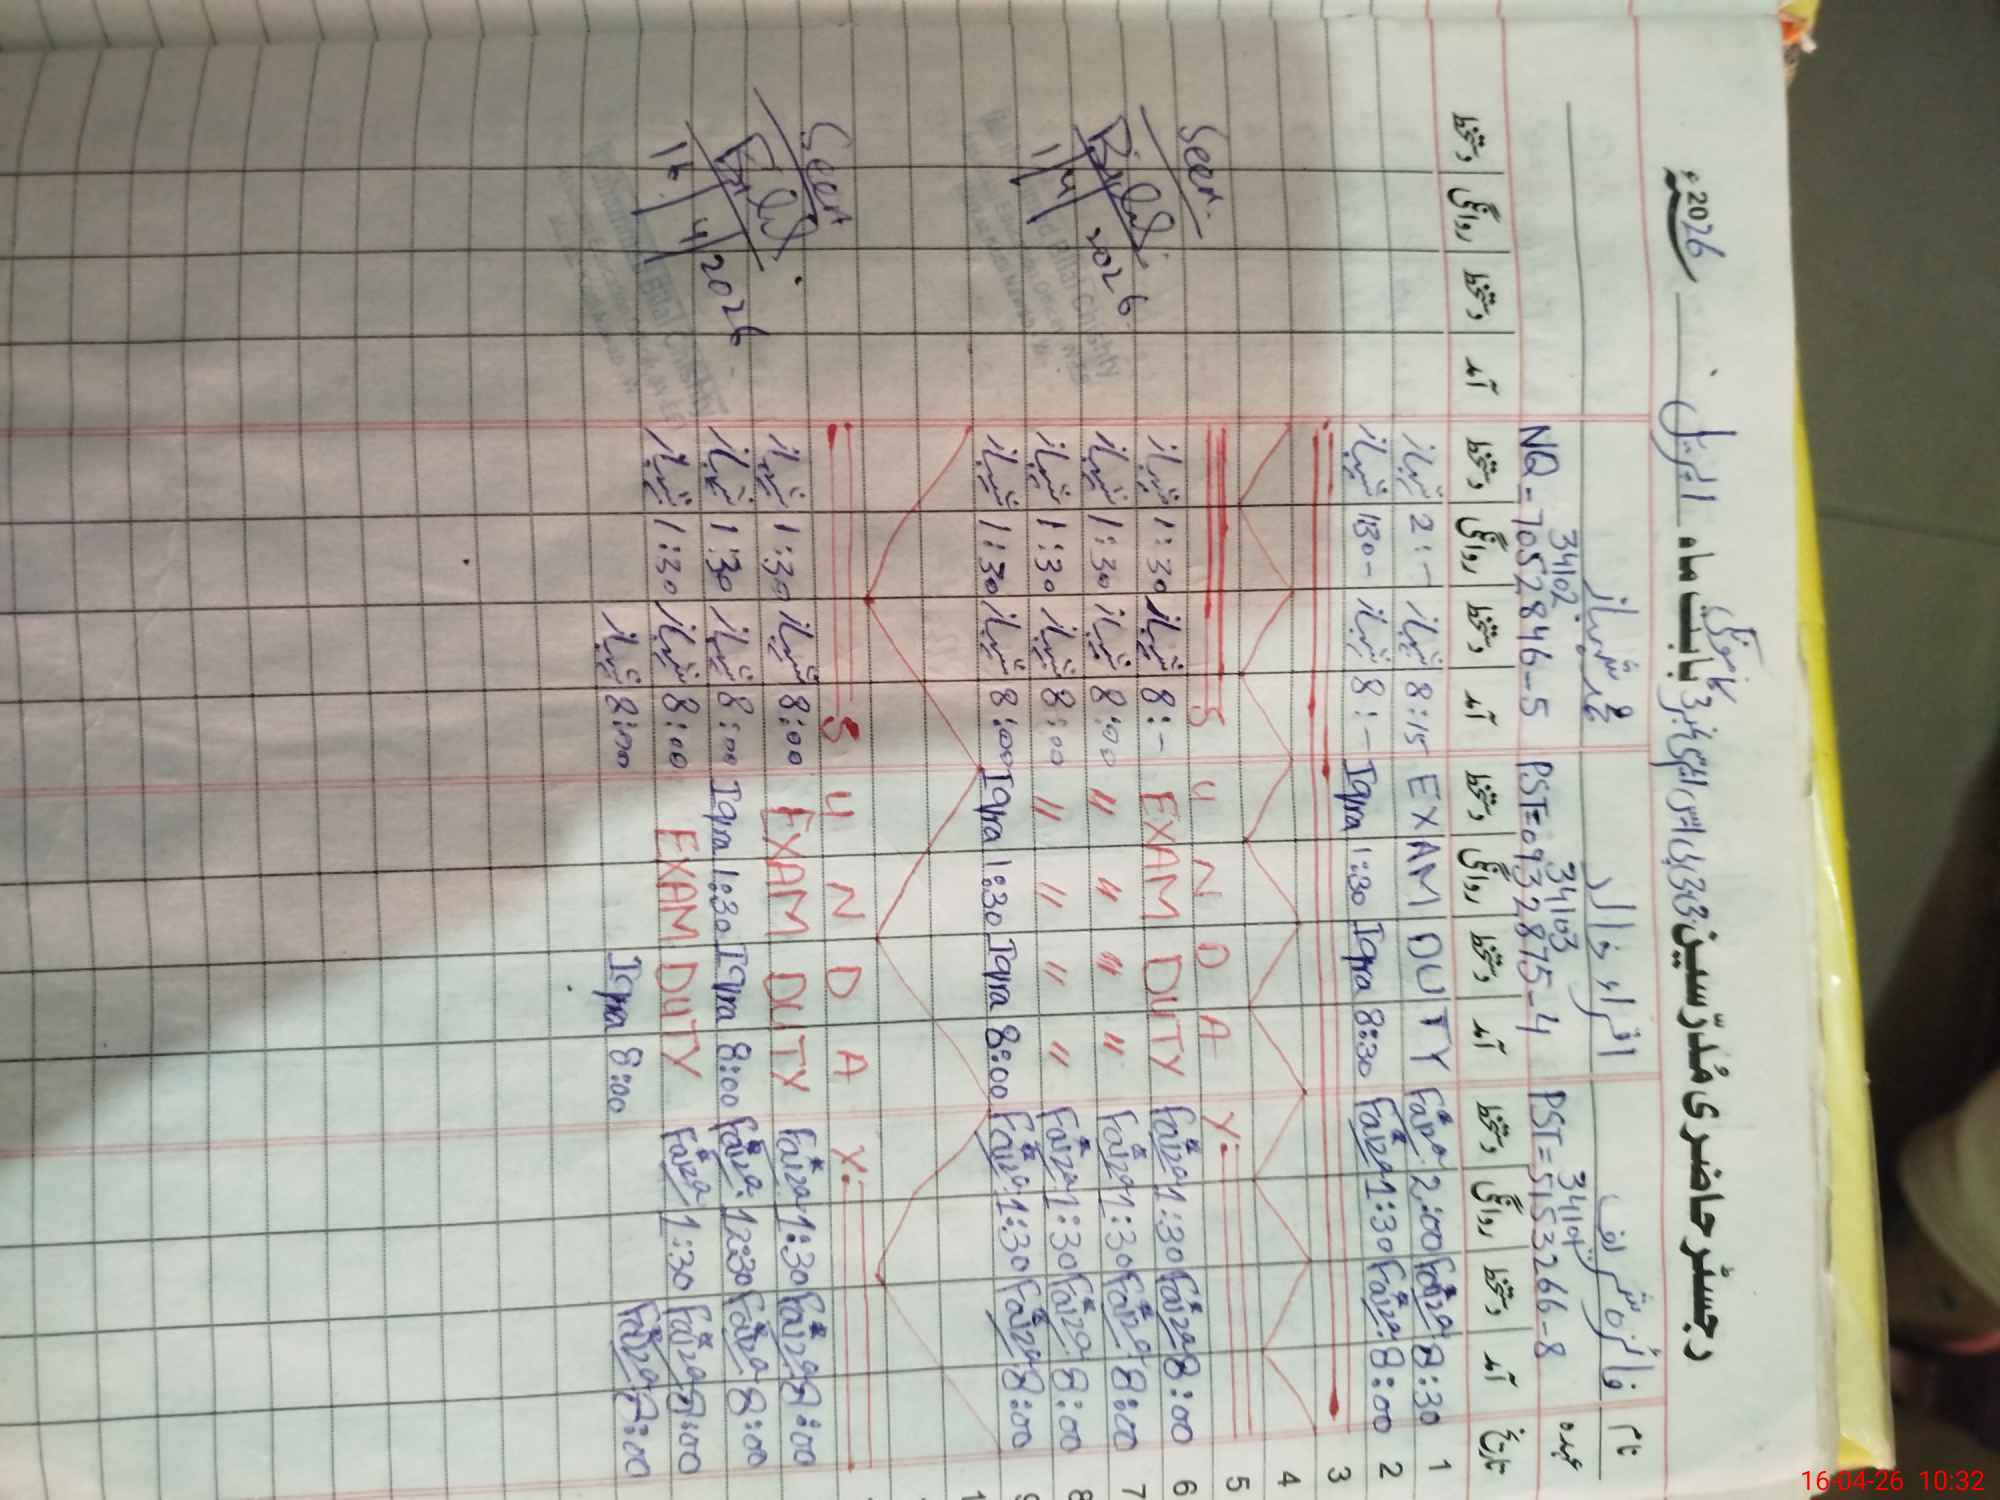 رجسٹر حاضری مُدرّسین
بابت ماہ اپریل 2026ء
نام فائزہ شرافت
34104 34103 34102
عہدہ PST=5153266-8 PST=0932875-4 NQ=7052846-5
تاریخ آمد دستخط روانگی دستخط آمد دستخط روانگی دستخط آمد دستخط روانگی دستخط آمد دستخط روانگی دستخط
1 8:30 Faiza 2:00 Faiza EXAM DUTY 8:15 شہباز 2:- شہباز
2 8:00 Faiza 1:30 Faiza 8:30 Iqra 1:30 Iqra 8:- شہباز 1:30- شہباز
3
4
5 S U N D A Y:
6 8:00 Faiza 1:30 Faiza EXAM DUTY 8:- شہباز 1:30 شہباز
7 8:00 Faiza 1:30 Faiza " " " " 8:00 شہباز 1:30 شہباز
8 8:00 Faiza 1:30 Faiza " " " " 8:00 شہباز 1:30 شہباز
9 8:00 Faiza 1:30 Faiza 8:00 Iqra 1:30 Iqra 8:00 شہباز 1:30 شہباز
Seen
1/4/2026
S U N D A Y:
8:00 Faiza 1:30 Faiza EXAM DUTY 8:00 شہباز 1:30 شہباز
8:00 Faiza 12:30 Faiza 8:00 Iqra 1:30 Iqra 8:00 شہباز 1:30 شہباز
8:00 Faiza 1:30 Faiza EXAM DUTY 8:00 شہباز 1:30 شہباز
8:00 Faiza 8:00 Iqra 8:00 شہباز
Seen
16/4/2026
Bilal Chishty
16-04-26 10:32